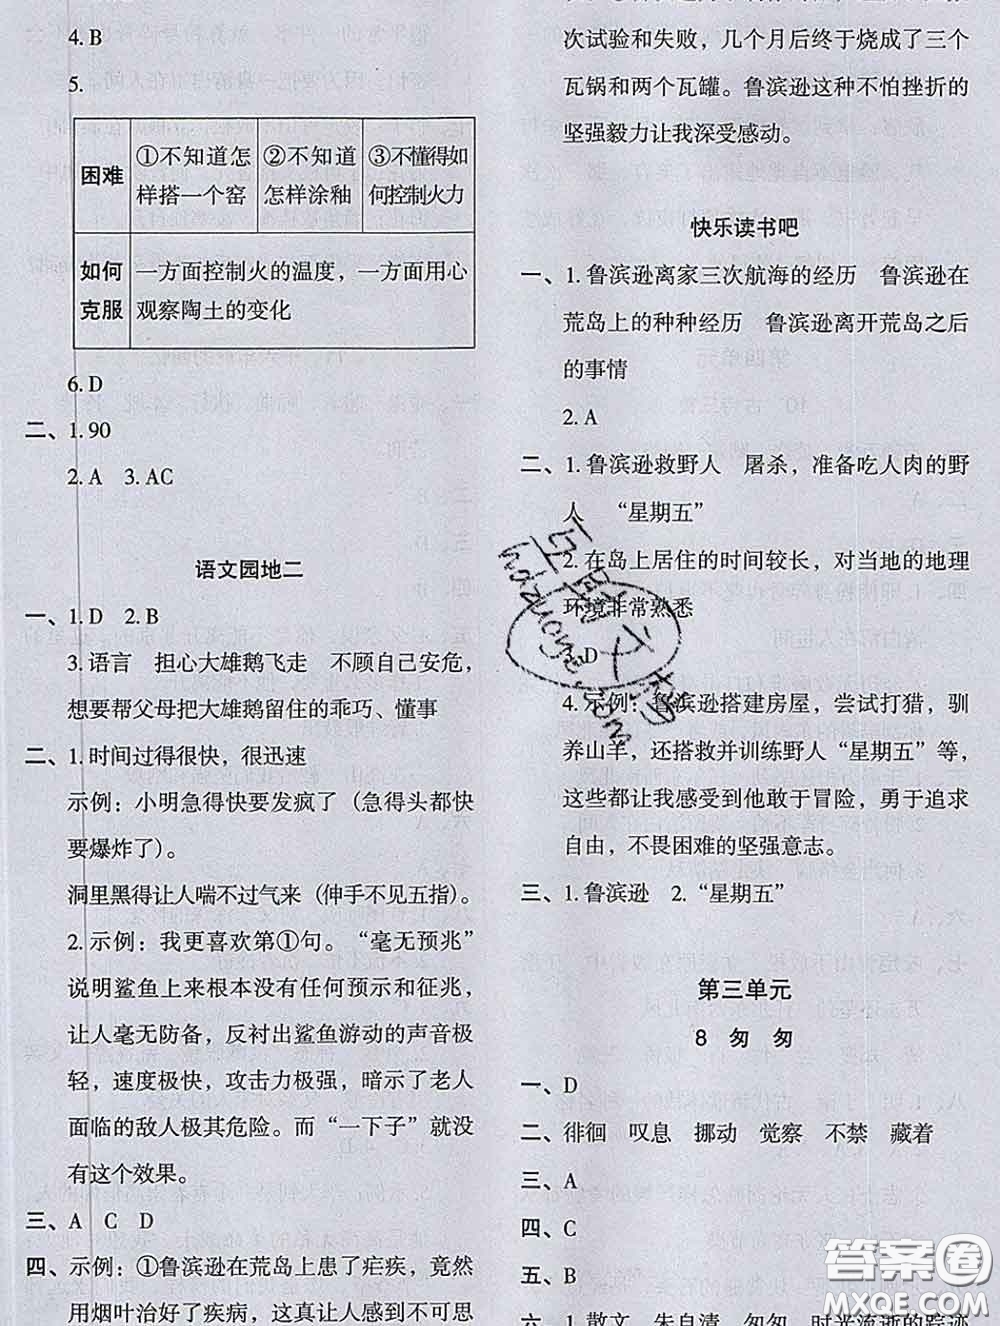 4. B
5.
困难
①不知道怎样搭一个窑
②不知道怎样涂釉
③不懂得如何控制火力
如何克服
一方面控制火的温度，一方面用心
观察陶土的变化
6. D
二、1. 90
2. A 3. AC
语文园地二
一、1. D 2. B
3. 语言 担心大雄鹅飞走 不顾自己安危，
想要帮父母把大雄鹅留住的乖巧、懂事
二、1. 时间过得很快，很迅速
示例：小明急得快要发疯了（急得头都快
要爆炸了）。
洞里黑得让人喘不过气来（伸手不见五指）。
2. 示例：我更喜欢第①句。“毫无预兆”
说明鲨鱼上来根本没有任何预示和征兆，
让人毫无防备，反衬出鲨鱼游动的声音极
轻，速度极快，攻击力极强，暗示了老人
面临的敌人极其危险。而“一下子”就没
有这个效果。
三、A C D
四、示例：①鲁滨逊在荒岛上患了疟疾，竟然
用烟叶治好了疾病，这真让人感到不可思
次试验和失败，几个月后终于烧成了三个
瓦锅和两个瓦罐。鲁滨逊这种不怕挫折的
坚强毅力让我深受感动。
快乐读书吧
一、1. 鲁滨逊离家三次航海的经历 鲁滨逊在
荒岛上的种种经历 鲁滨逊离开荒岛之后
的事情
2. A
二、1. 鲁滨逊救野人 屠杀，准备吃人肉的野
人 “星期五”
2. 在岛上居住的时间较长，对当地的地理
环境非常熟悉
3. D
4. 示例：鲁滨逊搭建房屋，尝试打猎，驯
养山羊，还搭救并训练野人“星期五”等，
这些都让我感受到他敢于冒险，勇于追求
自由，不畏困难的坚强意志。
三、1. 鲁滨逊 2. “星期五”
第三单元
8 匆 匆
一、D
二、徘徊 叹息 挪动 觉察 不禁 藏着
三、A
四、C
五、B
六、1. 散文 朱自清 匆匆 时光流逝的踪迹
答案圈
MXQE.COM